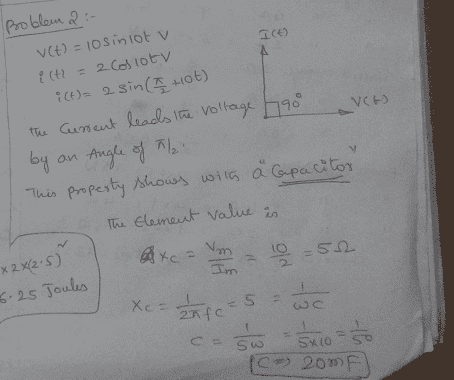 Problem 2 :-
V(t) = 10 sin 10t V
i(t) = 2 Cos 10t V
i(t) = 2 sin(π/2 +10t)
I(t)
90°
V(t)
The Current leads the voltage
by an Angle of π/2.
This property shows with a "Capacitor"
The Element value is
Xc = Vm/Im = 10/2 = 5Ω
x2x(2.5)²
6.25 Joules
Xc = 1/2πfc = 5 = 1/ωC
C = 1/5ω = 1/5x10 = 1/50
C => 20mF